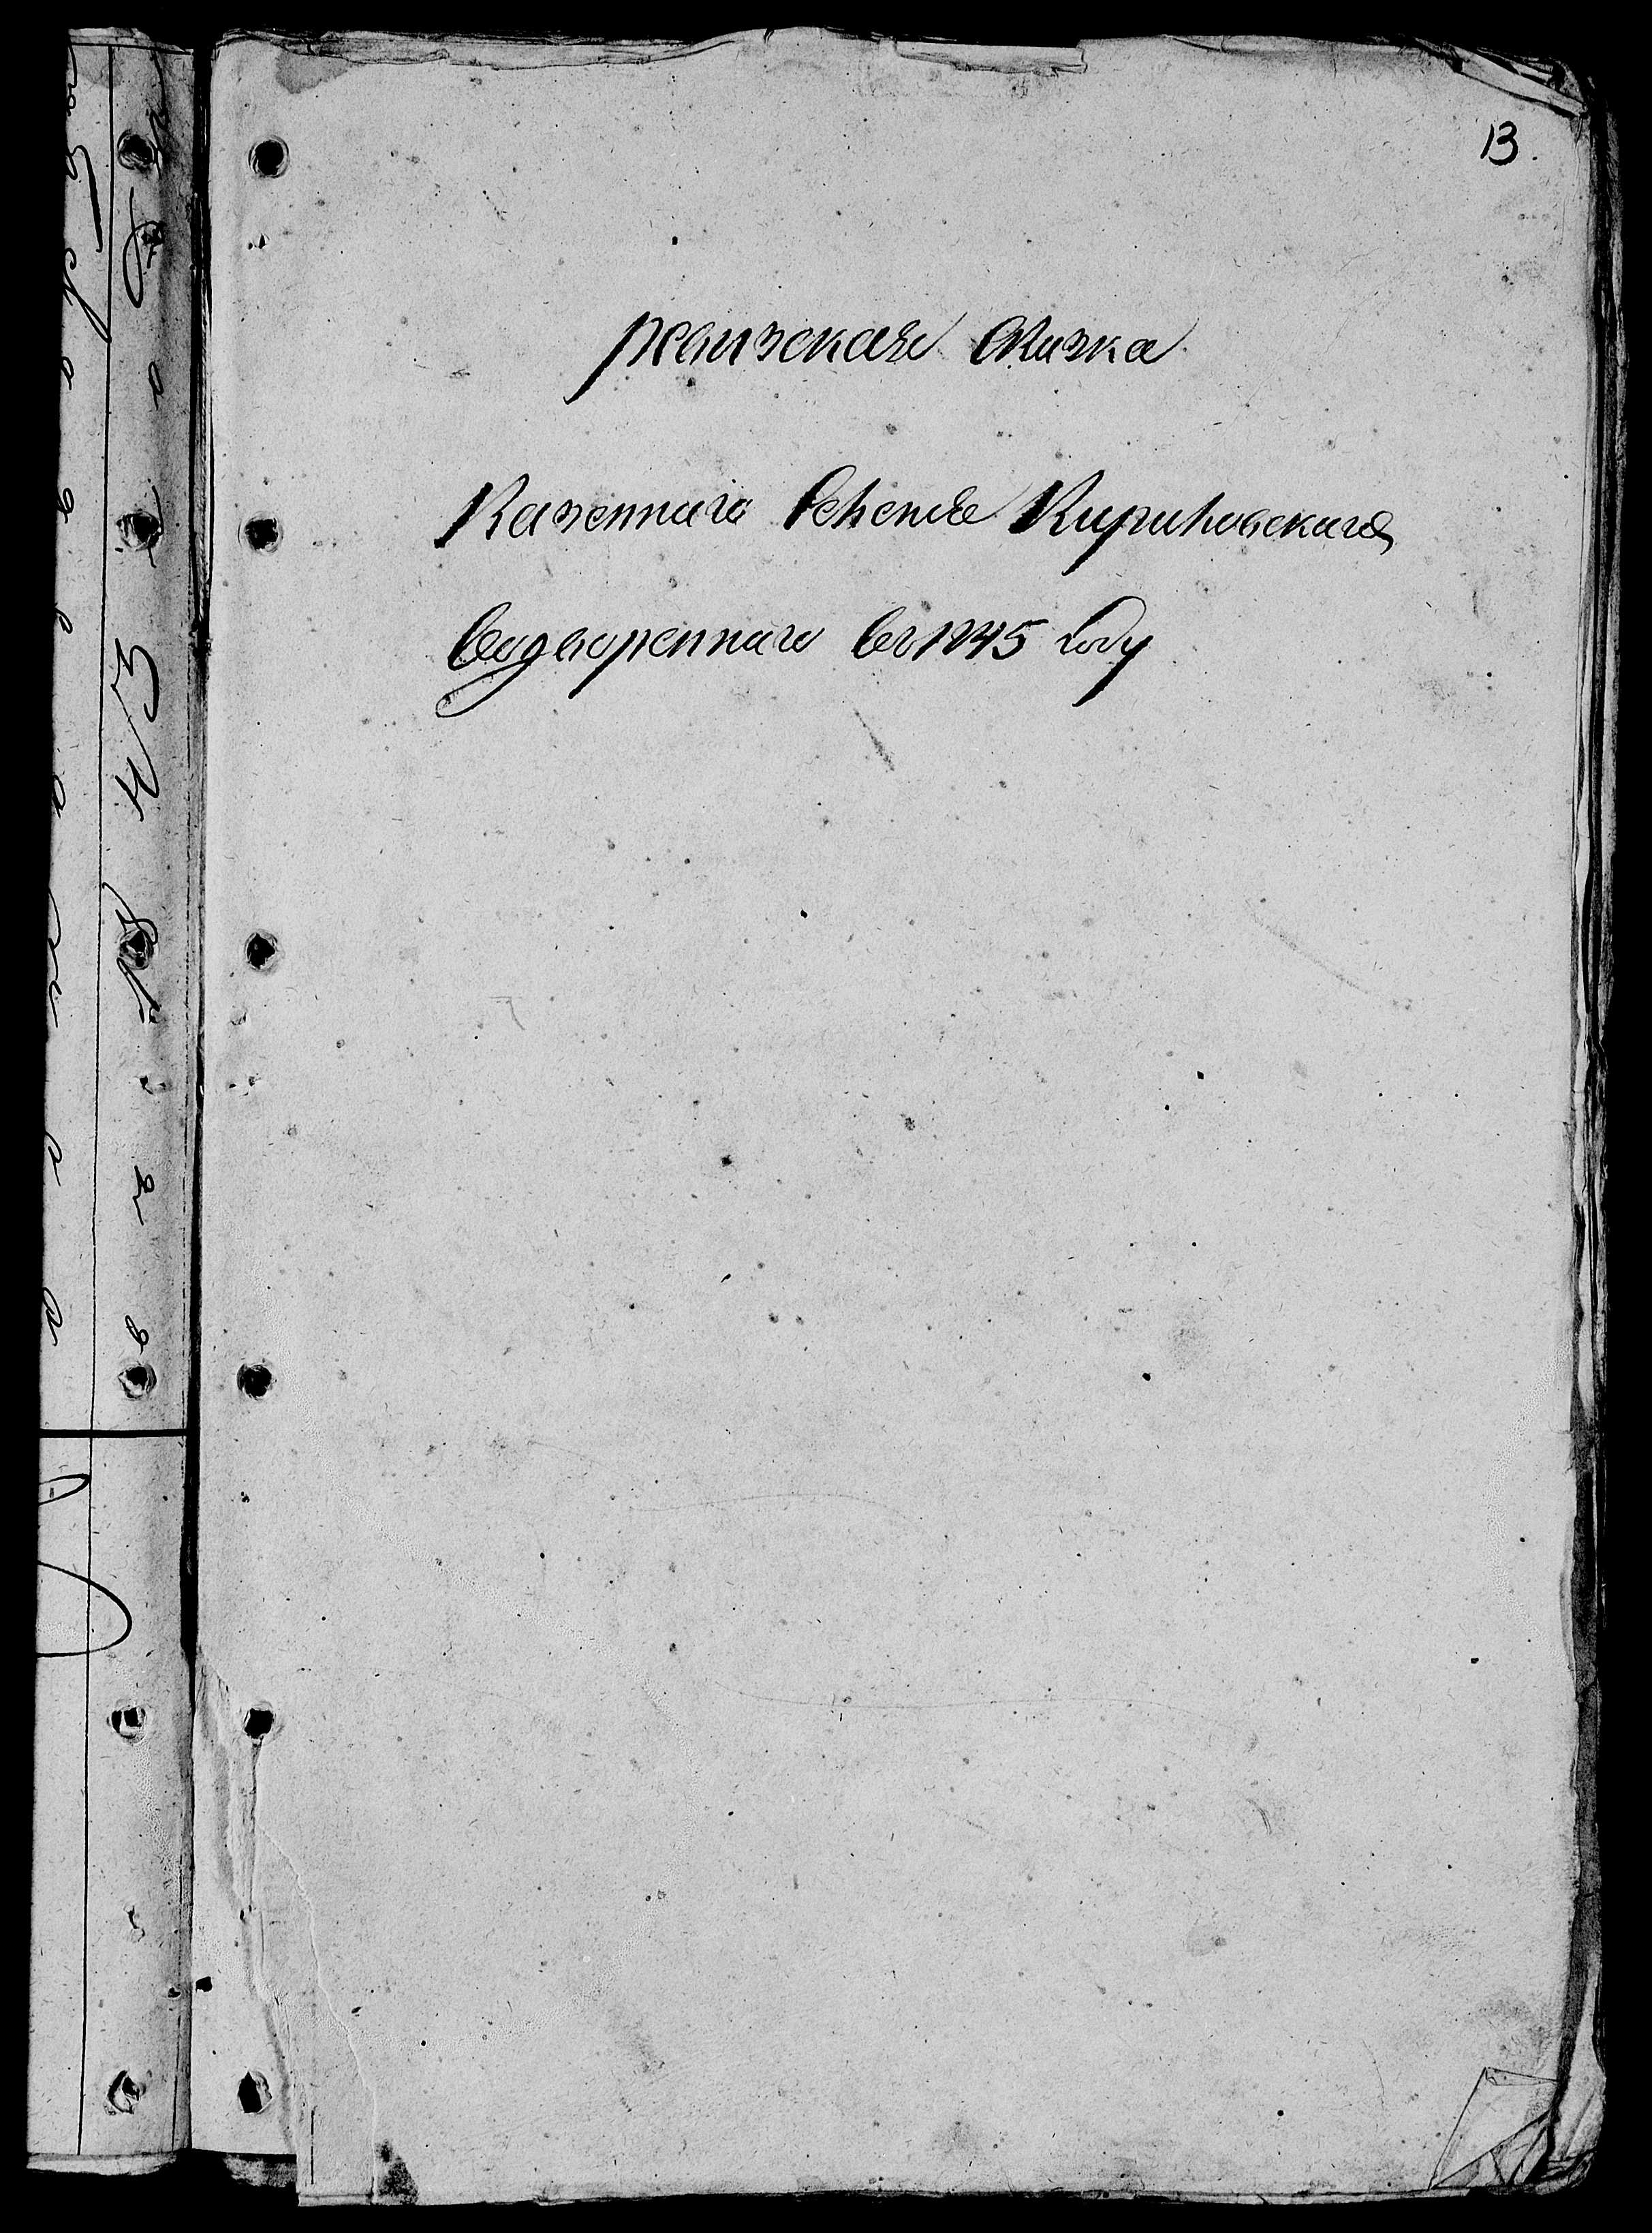 13.
ревизская сказка
Казеннаго селенія Кириковскаго
водвореннаго въ 1845 году